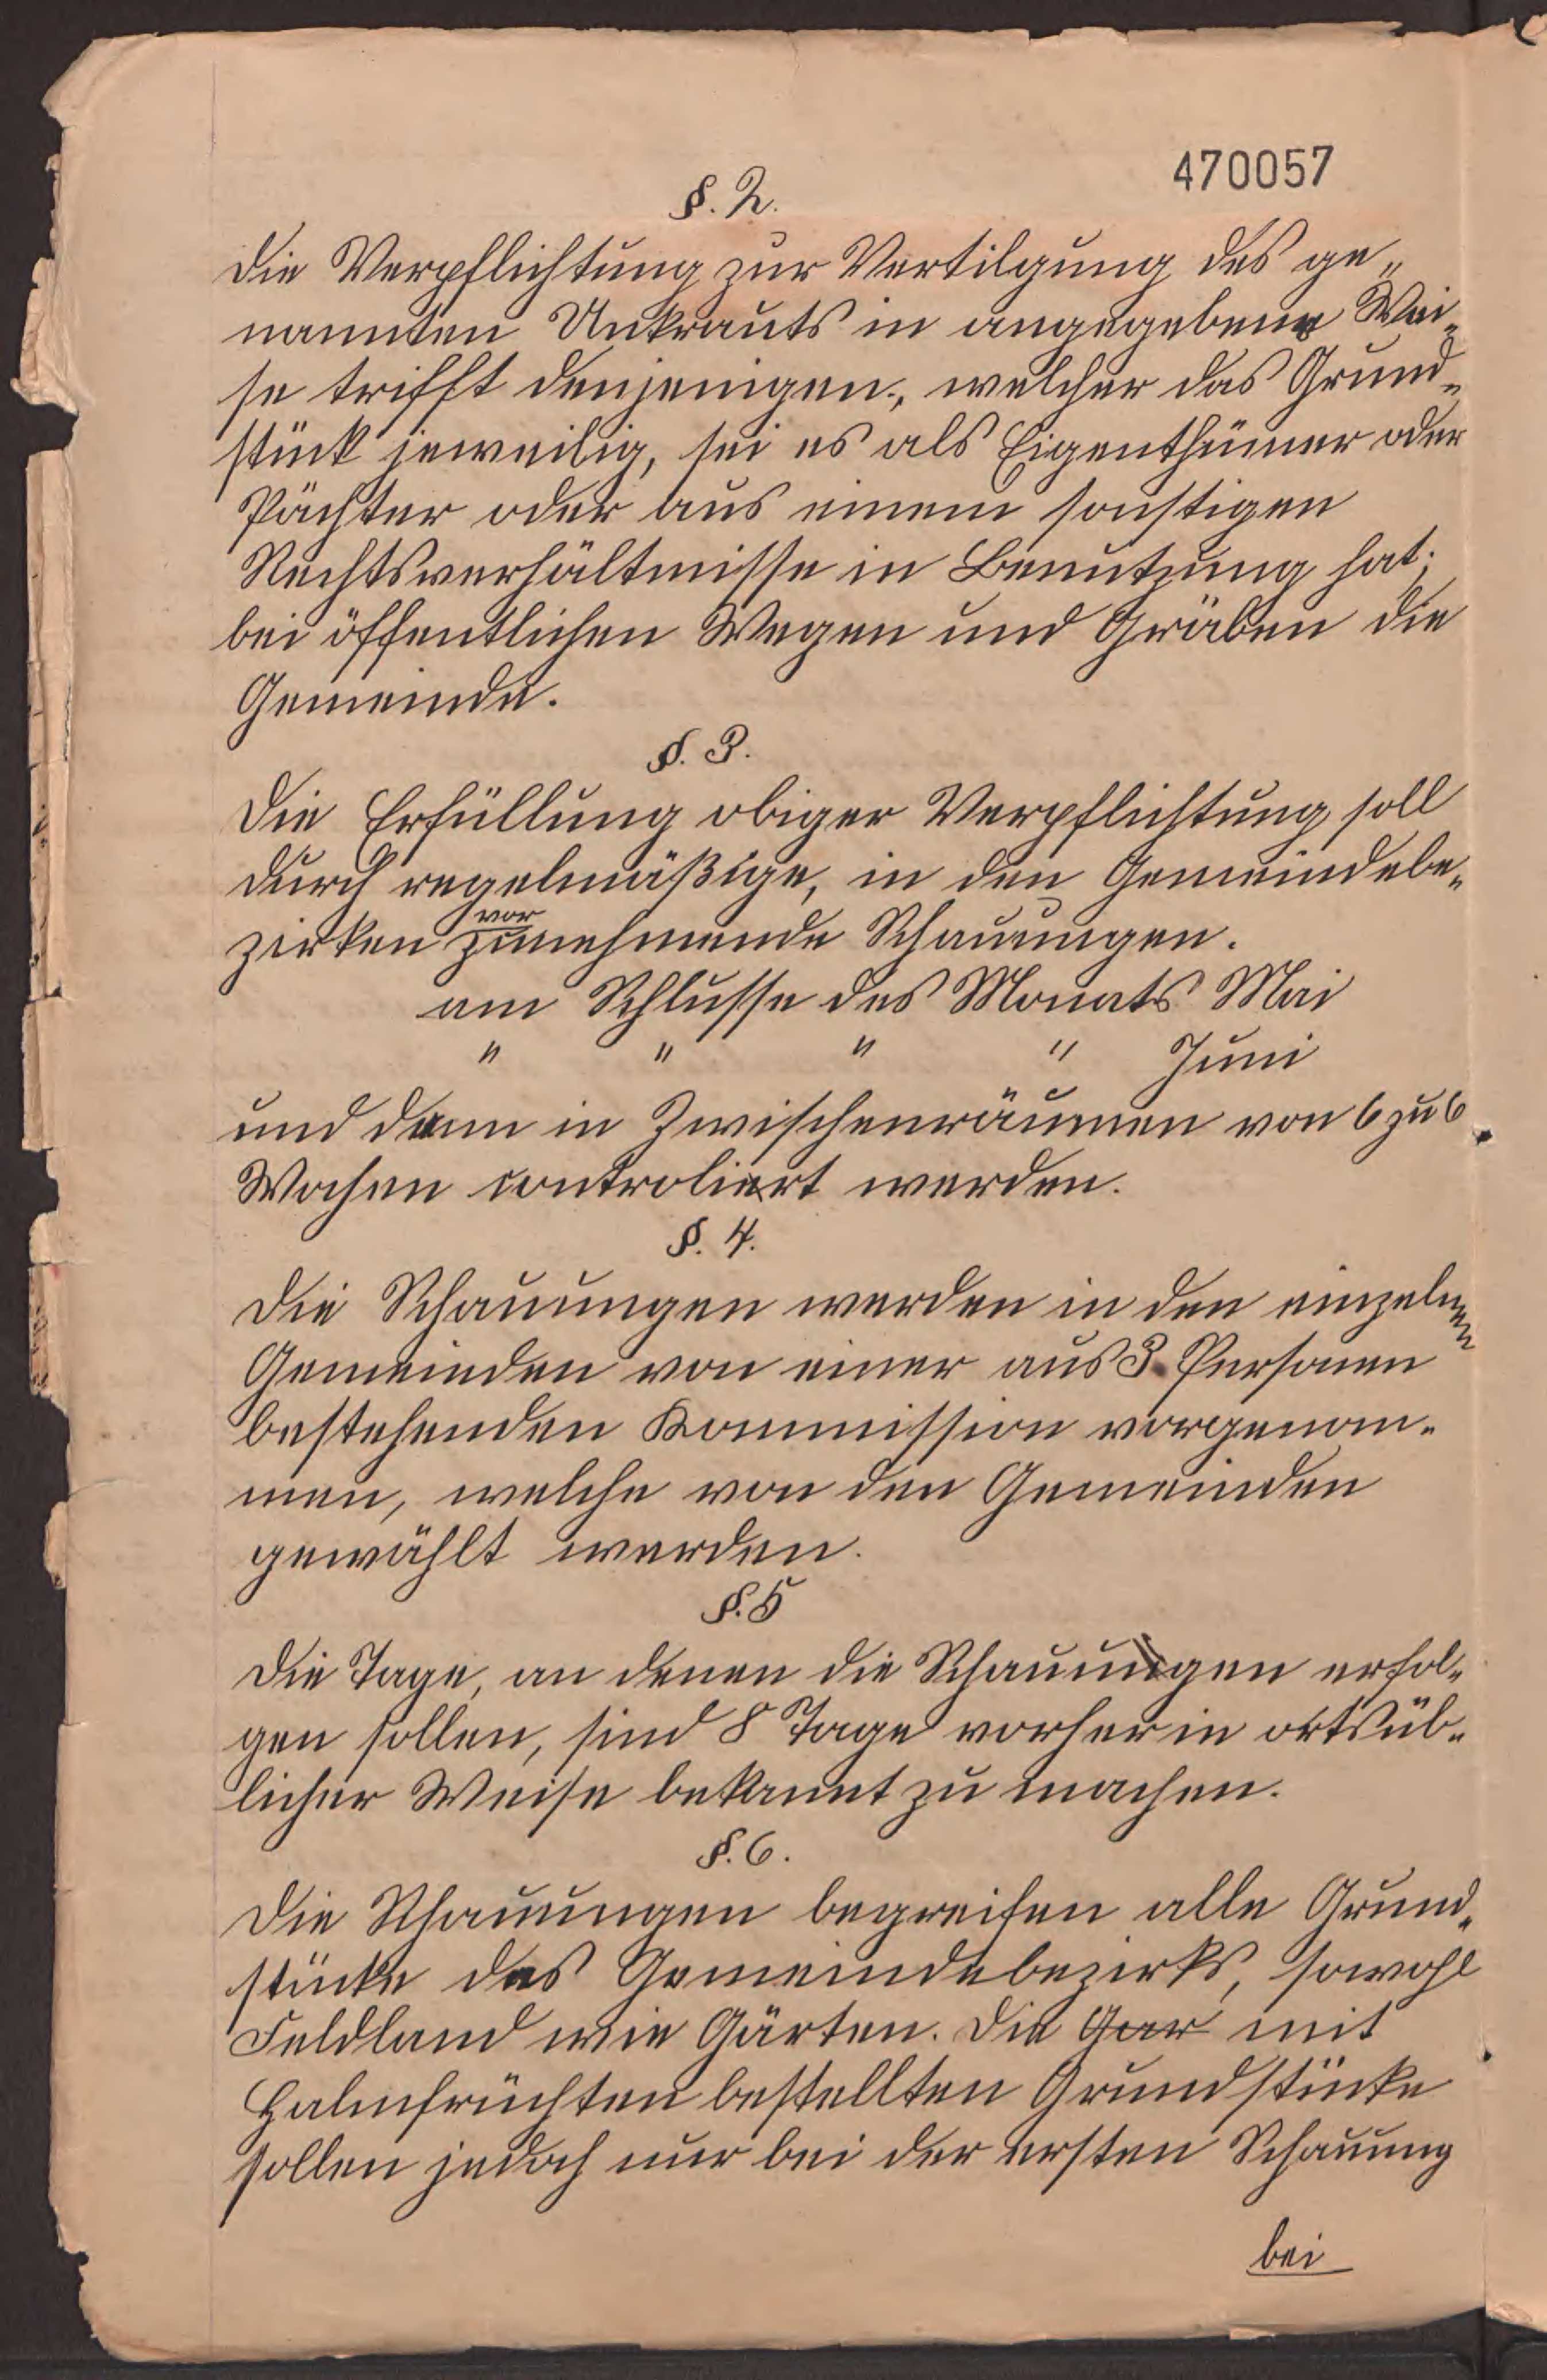 470057
§. 2.
Die Verpflichtung zur Vertilgung des ge„
nannten Unkrauts in angegebener Wei„
se trifft denjenigen, welcher das Grund„
stück jeweilig, sei es als Eigenthümer oder
Pächter oder aus einem sonstigen
Rechtsverhältnisse in Benutzung hat;
bei öffentlichen Wegen und Gräben die
Gemeinde.
§. 3.
Die Erfüllung obiger Verpflichtung soll
durch regelmäßige, in den Gemeindebe„
zirken vorzunehmende Schauungen.
am Schlusse des Monats Mai
" " " " Juni
und dann in Zwischenräumen von 6 zu 6
Wochen controliert werden.
§. 4.
Die Schauungen werden in den einzelnen
Gemeinden von einer aus 3 Personen
bestehenden Kommission vorgenom„
men, welche von den Gemeinden
gewählt werden.
§. 5
Die Tage, an denen die Schauungen erfol„
gen sollen, sind 8 Tage vorher in ortsüb„
licher Weise bekannt zu machen.
§. 6.
Die Schauungen begreifen alle Grund„
stücke des Gemeindebezirks, sowohl
Feldland wie Gärten. Die Gar mit
Halmfrüchten bestellten Grundstücke
sollen jedoch nur bei der ersten Schauung
bei